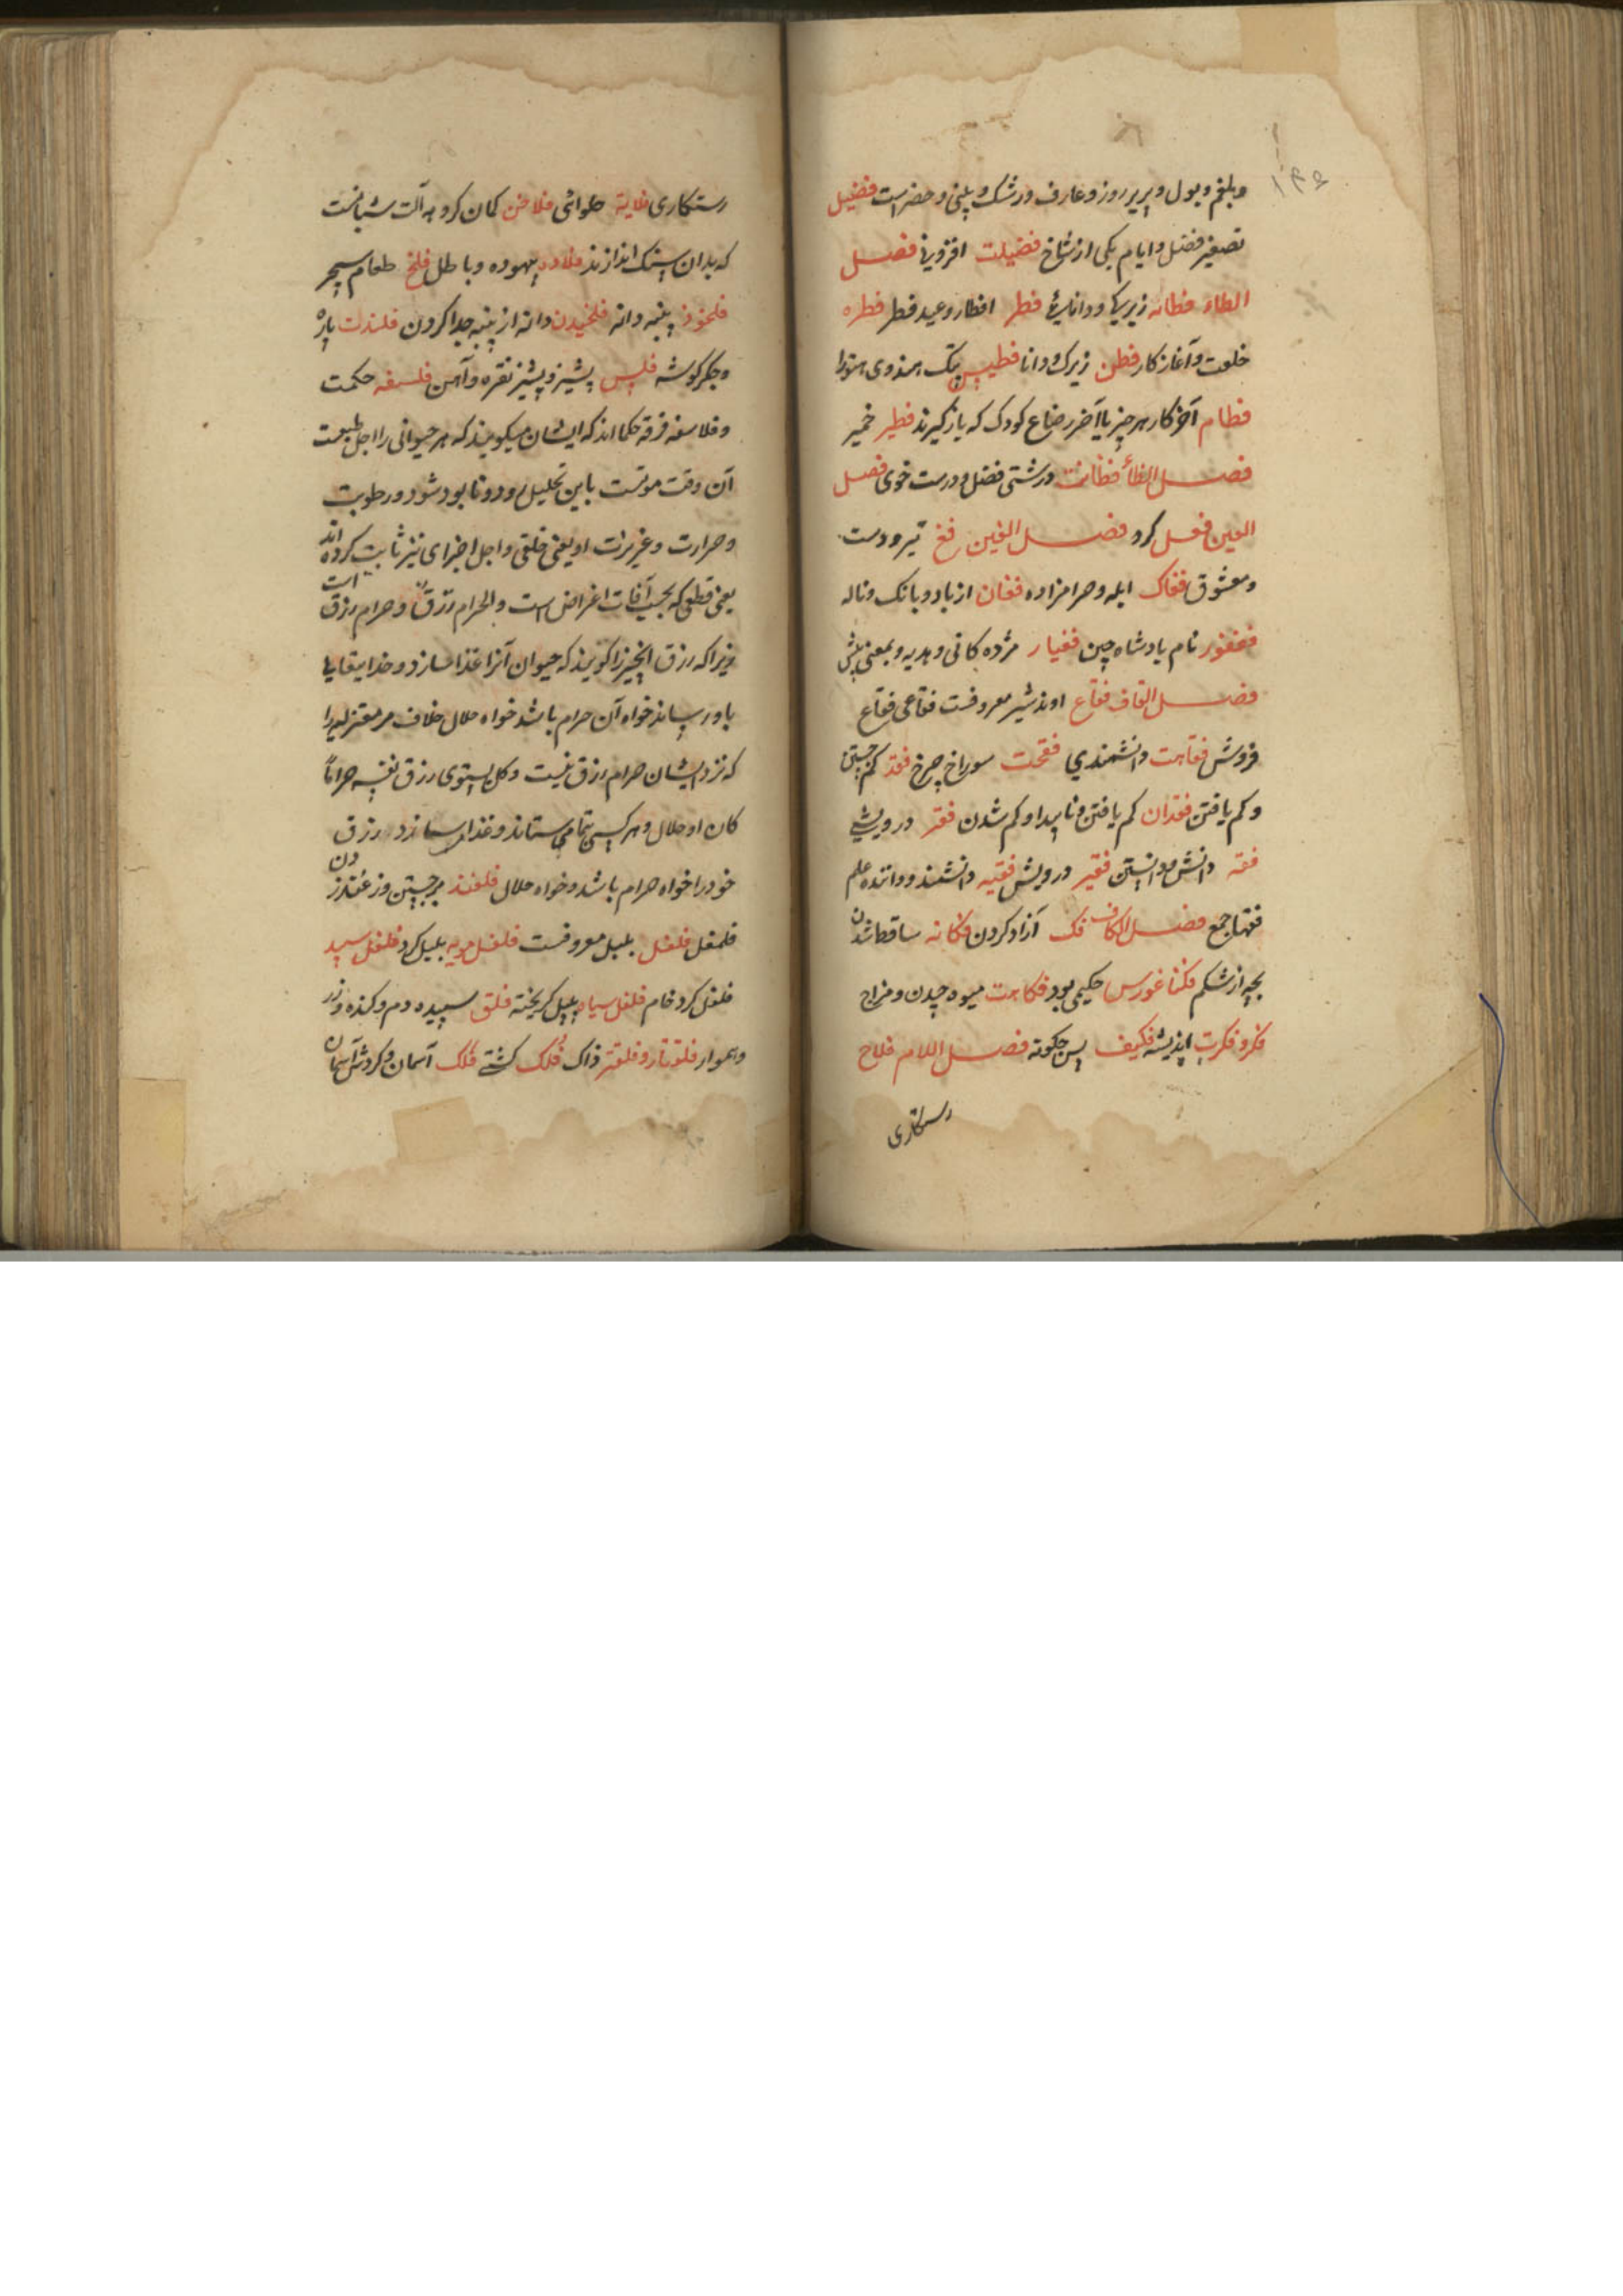 وبلغم وبول و پریر روز و عارف و رشک و پلنی و حضر است فضیل
تصغیر فضل و ایام یکی از نشاخ فضیلت افزونی فصل
الطاء فطانه زیرکی و دانائی فطر افطار و عید فطر فطره
خلقت و آغاز کار فطن زیرک و دانا فطیس پتک هندوی هتورا
فطام آخر کار هر چیز یا آخر رضاع کودک که باز گیرند فطیر خمیر
فصل الظاء فظاظت درشتی فظ درست خوی فصل
العین فعل کرد فصل الغین فغ تیر و دست
و معشوق فغاک ابله و حرامزاده فغان از باد و بانک و ناله
فغفور نام بادشاه چین فغیار مژده کانی و هدیه و بمعنی پیش
فصل القاف فقاع اوند شیر معروفست فقاعی فقاع
فروش فقاهت دانشمندی فقحت سوراخ چرخ فقد کم جستن
و کم یافتن فقدان کم یافتن و ناپیدا و کم شدن فقر درویشی
فقه دانش و دانستن فقیر درویش فقیه دانشمند و داننده علم
فقها جمع فصل الکاف فک آزاد کردن فکانه ساقط شدن
بچه از شکم فکثاغورس حکیمی بود فکاهت میوه چیدن و مزاج
فکر و فکرت اندیشه فکیف پس چکونه فصل اللام فلاح
رستکاری
رستکاری فلاته حلوائی فلاخن کمان کروهه آلت شبانست
که بدان سنک اندازند فلاده بیهوده و باطل فلخ طعام سحر
فلخوذ پنبه دانه فلخیدن دانه از پنبه جدا کردن فلذت پاره
و جکر کوشه فلس پشیز و پشیز نقره و آهن فلسفه حکمت
و فلاسفه فرقه حکما اند که ایشان میکویند که هر حیوانی را اجل طبیعت
آن وقت موتست باین تحلیل رود و نابود شود و رطوبت
و حرارت و غریزات او یعنی خلقی و اجل اخرای نیز ثابت کرده اند
یعنی قطعی که بحسب آفات اعراض است و الحرام رزق و حرام رزق است
زیرا که رزق انچیز را کویند که حیوان آنرا غذا سازد و خدایتعالی
باو رساند خواه آن حرام باشد خواه حلال خلاف مر معتزله را
که نزد ایشان حرام رزق نیست و کل یستوفی رزق نفسه حراما
کان او حلال و هر کسی بتمامی ستاند و غذا سازد رزق
خود را خواه حرام باشد و خواه حلال فلغند برجستن وزغندزدن
فلفل فلفل بلبل معروفست فلفل مویه بلبل کرد فلفل سپید
فلفل کرد خام فلفل سیاه پلپل کریخته فلق سپیده دم و کنده و زر
و هموار فلقتار و فلقتر ذاک فلک کشتی فلک آسمان و کردش آسمان